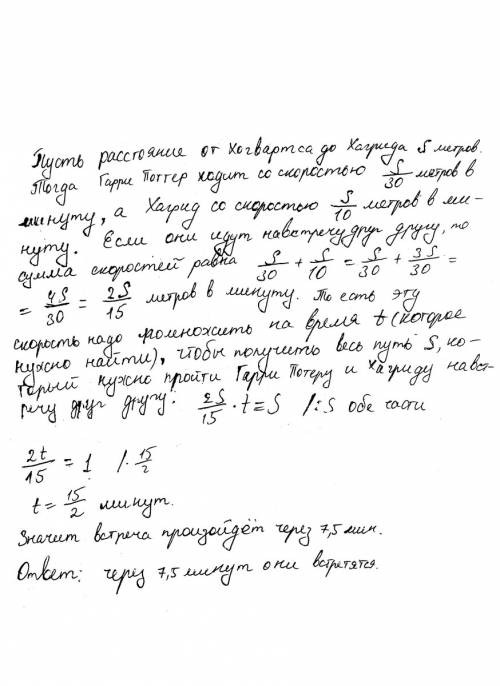 Пусть расстояние от Хогвартса до Хагрида S метров.
Тогда Гарри Поттер ходит со скоростью S/30 метров в
минуту, а Хагрид со скоростью S/10 метров в ми-
нуту. Если они идут навстречу друг другу, то
сумма скоростей равна S/30 + S/10 = S/30 + 3S/30 =
= 4S/30 = 2S/15 метров в минуту. То есть эту
скорость надо умножить на время t (которое
нужно найти), чтобы получить весь путь S, ко-
торый нужно пройти Гарри Потеру и Хагриду навст-
речу друг другу: 2S/15 · t = S /:S обе части
2t/15 = 1 /· 15/2
t = 15/2 минут.
Значит встреча произойдёт через 7,5 мин.
Ответ: через 7,5 минут они встретятся.